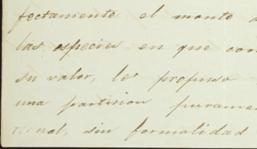 fectamente el monto
las especies en que con
su valor, les propuso
una partision purame
sional, sin formalidad